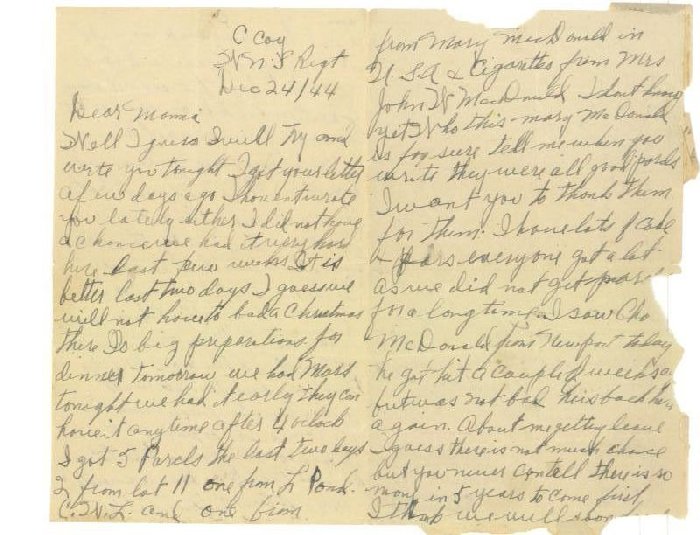 C Coy
N N S Regt
Dec 24/44
Dear Mama
Well I guess I will try and
write you tonight I got your letter
a few days ago I havent wrote
you lately either I did not have
a chance we had it very hard
here last few weeks It is
better last two days I guess we
will not have to bad a Christmas
there Is big preperations for
dinner tomorrow we had Mass
tonight we had it early they can
have it any time after 4 oclock
I got 5 Parcls the last two days
2 from lot 11 one from F Pond.
C. W. L. and one from
from Mary MacDonald in
U S A & Cigarettes from Mrs
John W MacDonald I dont know
yet Who this mary McDonald
is for sure tell me when you
write they were all good parcls
I want you to thank them
for them. I have lots of cake
everyone got a lot
as we did not get
for a long time I saw
McDonald from Newport today
he got hit a couple of weeks
but was not bad he is back
again. About me getting leave
I guess there is not much chance
but you never can tell there is so
many in 5 years to come first
I think we will soon